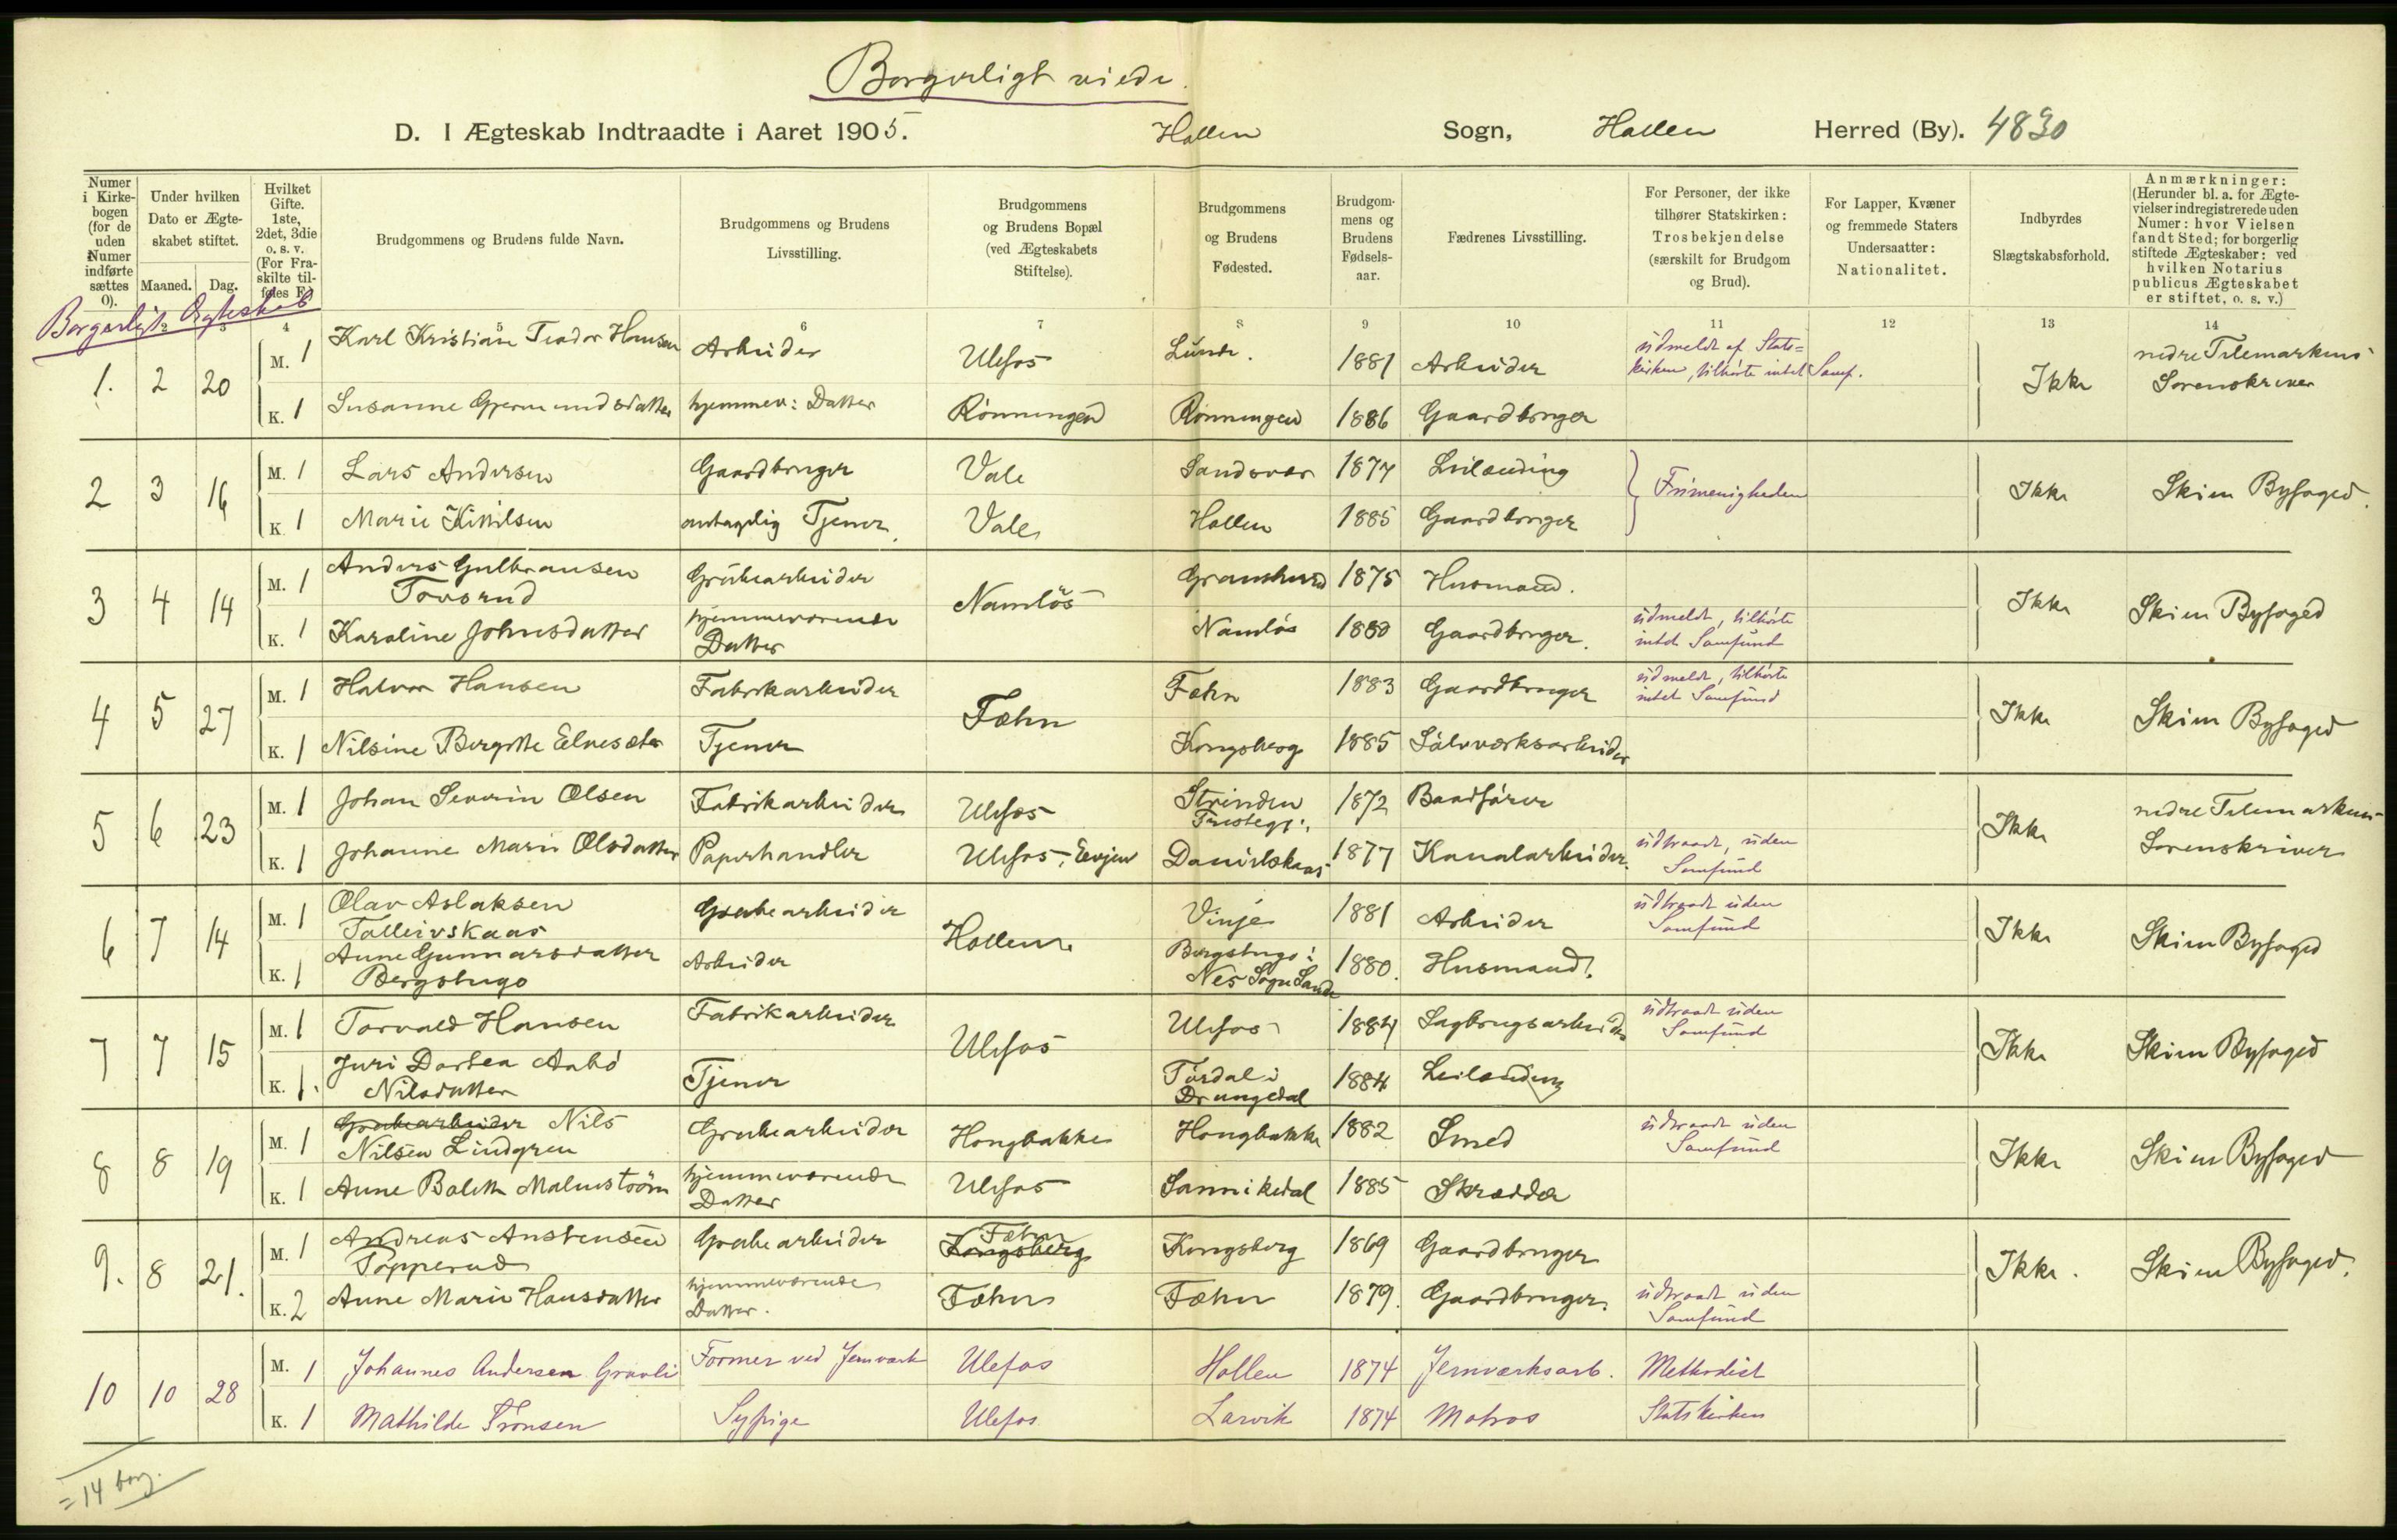 Borgerligt viede.
D. I Ægteskab Indtraadte i Aaret 1905. Hollen Sogn, Hollen Herred (By). 4830
Numer i Kirkebogen (for de uden Numer indførte sættes 0). Under hvilken Dato er Ægteskabet stiftet. Maaned. Dag. Hvilket Gifte. 1ste, 2det, 3die o. s. v. (For Fraskilte tilføies F.) Brudgommens og Brudens fulde Navn. Brudgommens og Brudens Livsstilling. Brudgommens og Brudens Bopæl (ved Ægteskabets Stiftelse). Brudgommens og Brudens Fødested. Brudgommens og Brudens Fødselsaar. Fædrenes Livsstilling. For Personer, der ikke tilhører Statskirken: Trosbekjendelse (særskilt for Brudgom og Brud). For Lapper, Kvæner og fremmede Staters Undersaatter: Nationalitet. Indbyrdes Slægtskabsforhold. Anmærkninger: (Herunder bl. a. for Ægtevielser indregistrerede uden Numer: hvor Vielsen fandt Sted; for borgerlig stiftede Ægteskaber: ved hvilken Notarius publicus Ægteskabet er stiftet, o. s. v.)
Borgerligt Ægteskab
2 3 4 5 6 7 8 9 10 11 12 13 14
1. 2 20 M. 1 Karl Kristian Teodor Hansen Arbeider Ulefos Lunde. 1881 Arbeider udmeldt af Stats= kirken, tilhørte intet Samf. Ikke nedre Telemarkens Sorenskriver
K. 1 Susanne Gjermundsdatter hjemmev: Datter Rönningen Rönningen 1886 Gaardbruger
2 3 16 M. 1 Lars Andersen Gaardbruger Vale Sandsvær 1877 Leilænding Frimenigheden Ikke Skien Byfoged.
K. 1 Marie Kittilsen antagelig Tjener. Vale Hollen 1885 Gaardbruger
3 4 14 M. 1 Anders Gulbransen Tovsrud Grubearbeider Namlös Gransherad 1875 Husmand. Ikke Skien Byfoged
K. 1 Karoline Johnsdatter hjemmeværende Datter Namlös 1880 Gaardbruger. udmeldt, tilhörte intet Samfund
4 5 27 M. 1 Halvor Hansen Fabrikarbeider Fæhn Fæhn 1883 Gaardbruger udmeldt, tilhörte intet Samfund Ikke Skien Byfoged
K. 1 Nilsine Bergitte Elvesæter Tjener Kongsberg 1885 Sölvværksarbeider
5 6 23 M. 1 Johan Severin Olsen Fabrikarbeider Ulefos Strinden 1872 Baadförer Ikke nedre Telemarkens Sorenskriver
K. 1 Johanne Marie Olsdatter Papirhandler Ulefos, Eevjen 1877 Kanalarbeider. udtraadt, uden Samfund
6 7 14 M. 1 Olav Aslaksen Talleivskaas Grubearbeider Hollen Vinje 1881 Arbeider udtraadt uden Samfund Ikke Skien Byfoged
K. 1 Anne Gunnarsdatter Bergstugo Arbeider Bergstugo i Nes Sogn Saude 1880. Husmand.
7 7 15 M. 1 Torvald Hansen Fabrikarbeider Ulefos Ulefos 1884 Sagbrugsarbeider udtraadt uden Samfund Ikke Skien Byfoged
K. 1. Juri Dortea Aabö Nilsdatter Tjener Tördal i Drangedal 1884 Leilænding
8 8 19 M. 1 Grubearbeider Nils Nilsen Lindgren Grubearbeider Hongbakke Hongbakke 1882 Smed udtraadt uden Samfund Ikke Skien Byfoged
K. 1 Anne Bolette Malmström hjemmeværende Datter Ulefos Sannikedal 1885 Skrædder
9. 8 21. M. 1 Andreas Anstensen Popperud Grubearbeider Kongsberg Fæhn Kongsberg 1869 Gaardbruger Ikke. Skien Byfoged.
K. 2 Anne Marie Hansdatter hjemmeværende Datter. Fæhn Fæhn 1879. Gaardbruger. udtraadt uden Samfund
10 10 28 M. 1 Johannes Andersen Gravli Former ved Jernværk Ulefos Hollen 1874 Jernværksarb. Methodist
K. 1 Mathilde Tronsen Sypige Ulefos Larvik 1874 Matros Statskirken
= 14 borg.